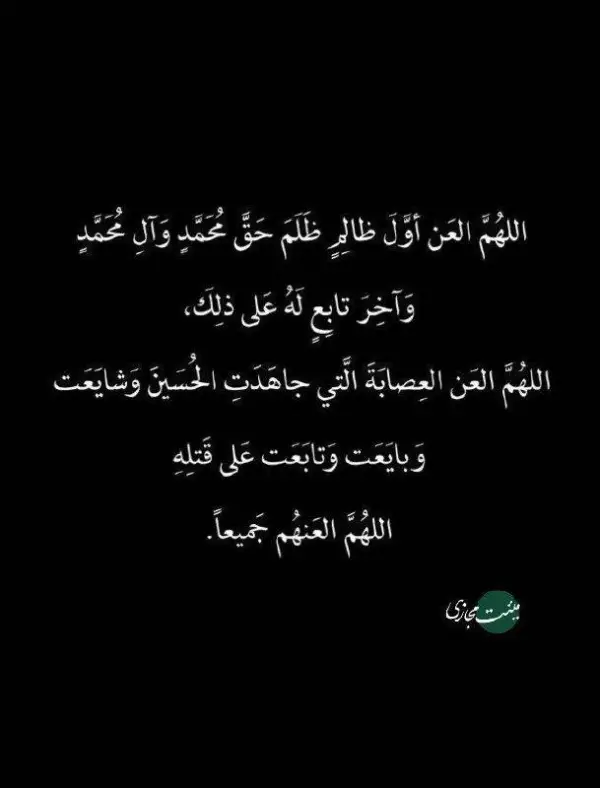 اللهُمَّ العَن أوَّلَ ظالِمٍ ظَلَمَ حَقَّ مُحَمَّدٍ وَآلِ مُحَمَّدٍ
وَآخِرَ تابِعٍ لَهُ عَلى ذلِكَ،
اللهُمَّ العَن العِصابَةَ الَّتي جاهَدَتِ الحُسَينَ وَشايَعَت
وَبايَعَت وَتابَعَت عَلى قَتلِهِ
اللهُمَّ العَنهُم جَميعاً.
مجازی